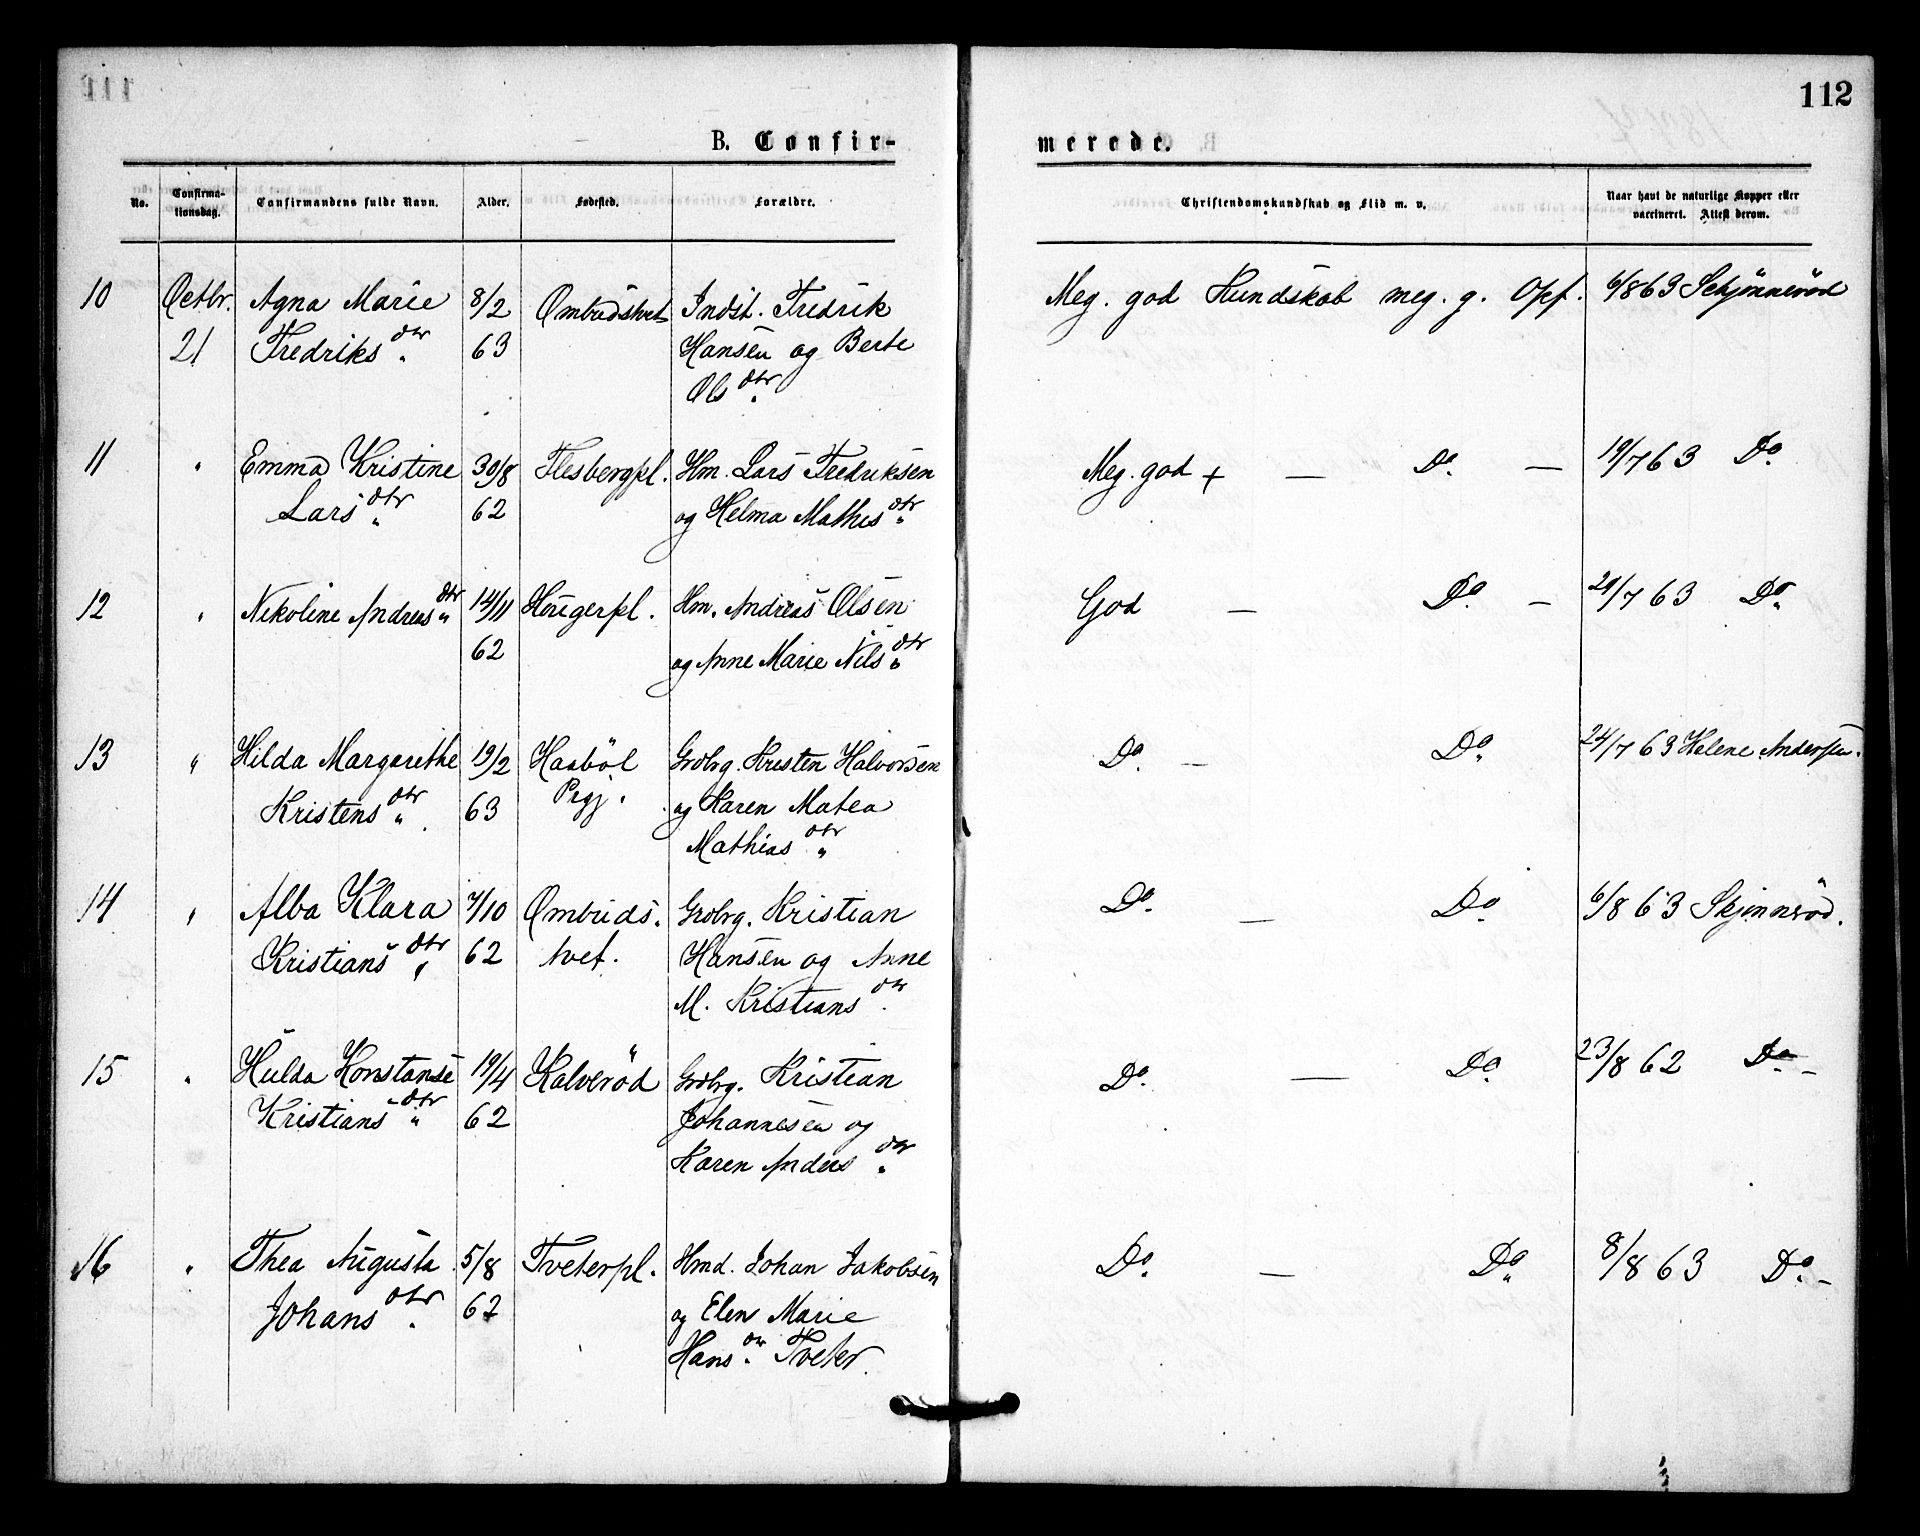 112
B. Confirmerede.
No. Confirmationsdag. Confirmandens fulde Navn. Alder. Fødested. Forældre. Christendomskundskab og Flid m. v. Naar havt de naturlige Kopper eller vaccineret. Attest derom.
10 Octbr. Agna Marie 8/2 Ombudstvet Indst. Fredrik Meg. god Kundskab meg. g. Opf. 6/8 63 Schjønnerød
21 Fredriks dtr. 63 Hansen og Berte
Ols dtr.
11 " Emma Kristine 30/8 Flesbergpl. Hm. Lars Fredriksen Meg. god + — Do — 19/7 63 Do
Lars dtr. 62 og Helma Mathis dtr.
12 " Nikoline Andreas dtr. 14/11 Haugerpl. Hm. Andreas Olsen God — Do. — /7 63 Do.
62 og Anne Marie Nils dtr.
13 " Hilda Margarethe 19/2 Haabøl Grdbrg. Kristen Halvorsen Do. — Do. 24/7 63 Helene Andersen.
Kristens dtr. 63 Prgj. og Karen Matea
Mathias dtr.
14 " Alba Klara 7/10 Ombuds. Grdbrg. Kristian Do. — Do. 6/8 63 Skjønnerød.
Kristians dtr. 62 tvet. Hansen og Anne
M. Kristians dtr.
15 " Hulda Konstanse 19/4 Kalverød Grdbrg. Kristian Do. — Do. 23/8 62 Do. –
Kristians dtr. 62 Johannesen og
Karen Anders dtr.
16 " Thea Augusta 5/8 Tveterpl. Hmd. Johan Jakobsen Do. — Do. 8/8 63 Do. –
Johans dtr. 62 og Elen Marie
Hans dtr. Tveter.